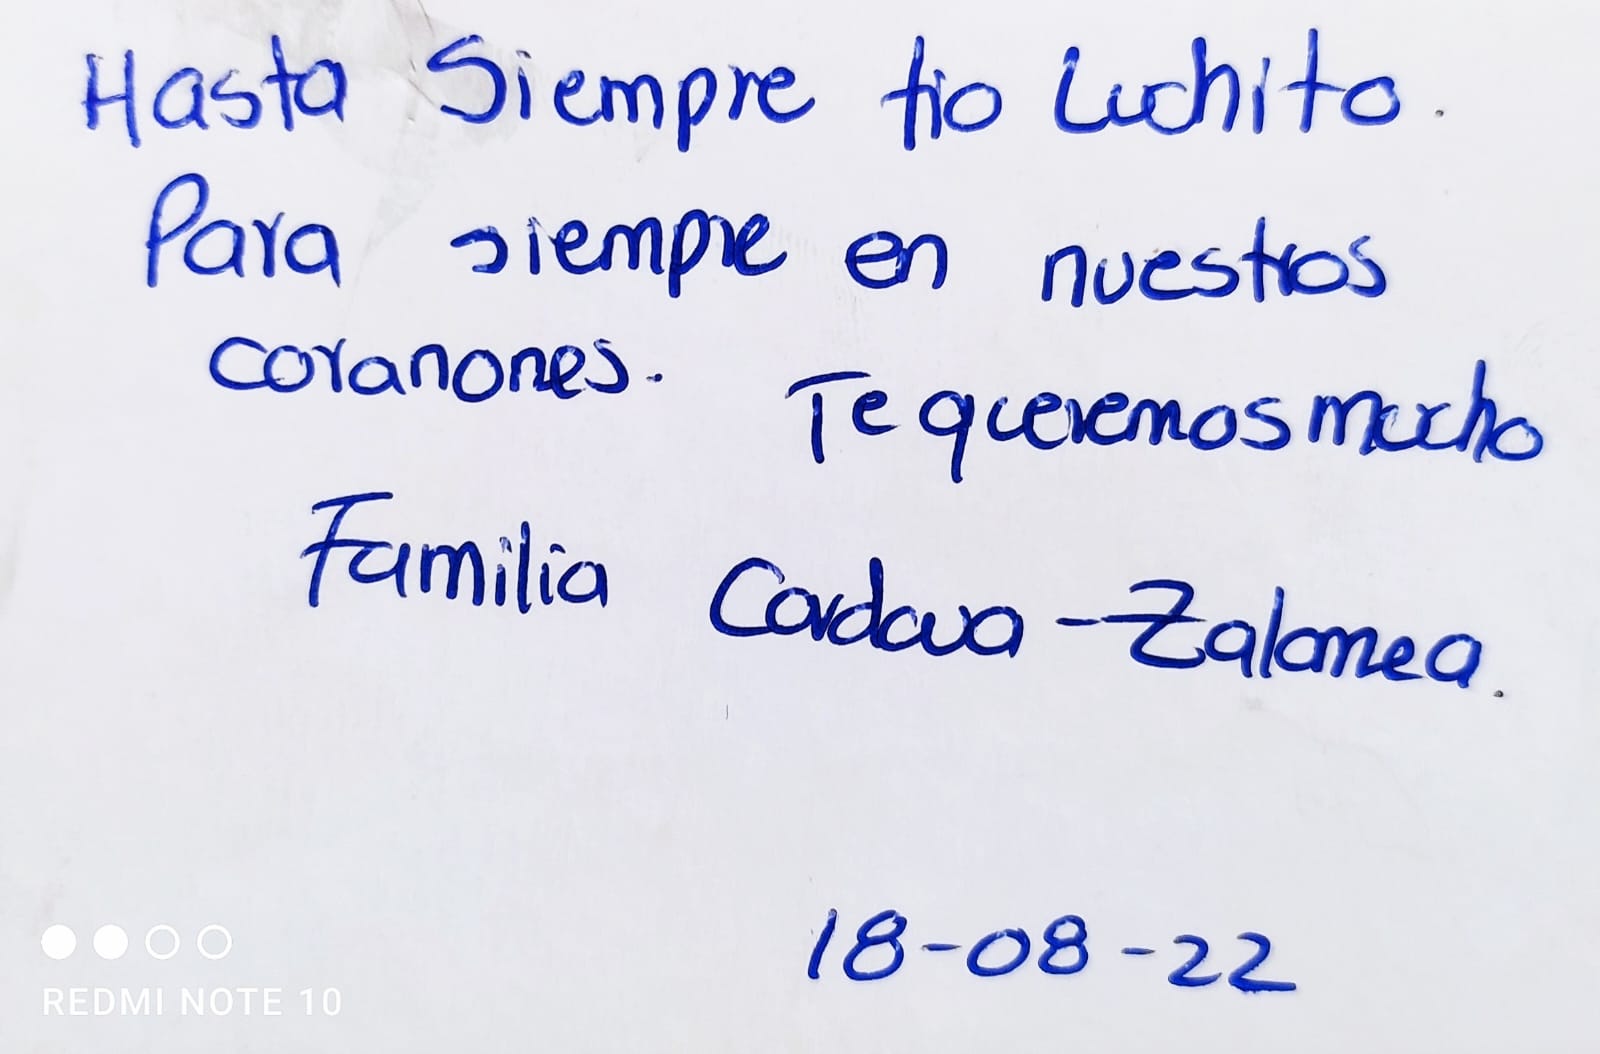 Hasta Siempre tio Luchito.
Para siempre en nuestros
coranones. Te queremos mucho
Familia Cordova - Zalamea.
18-08-22
REDMI NOTE 10